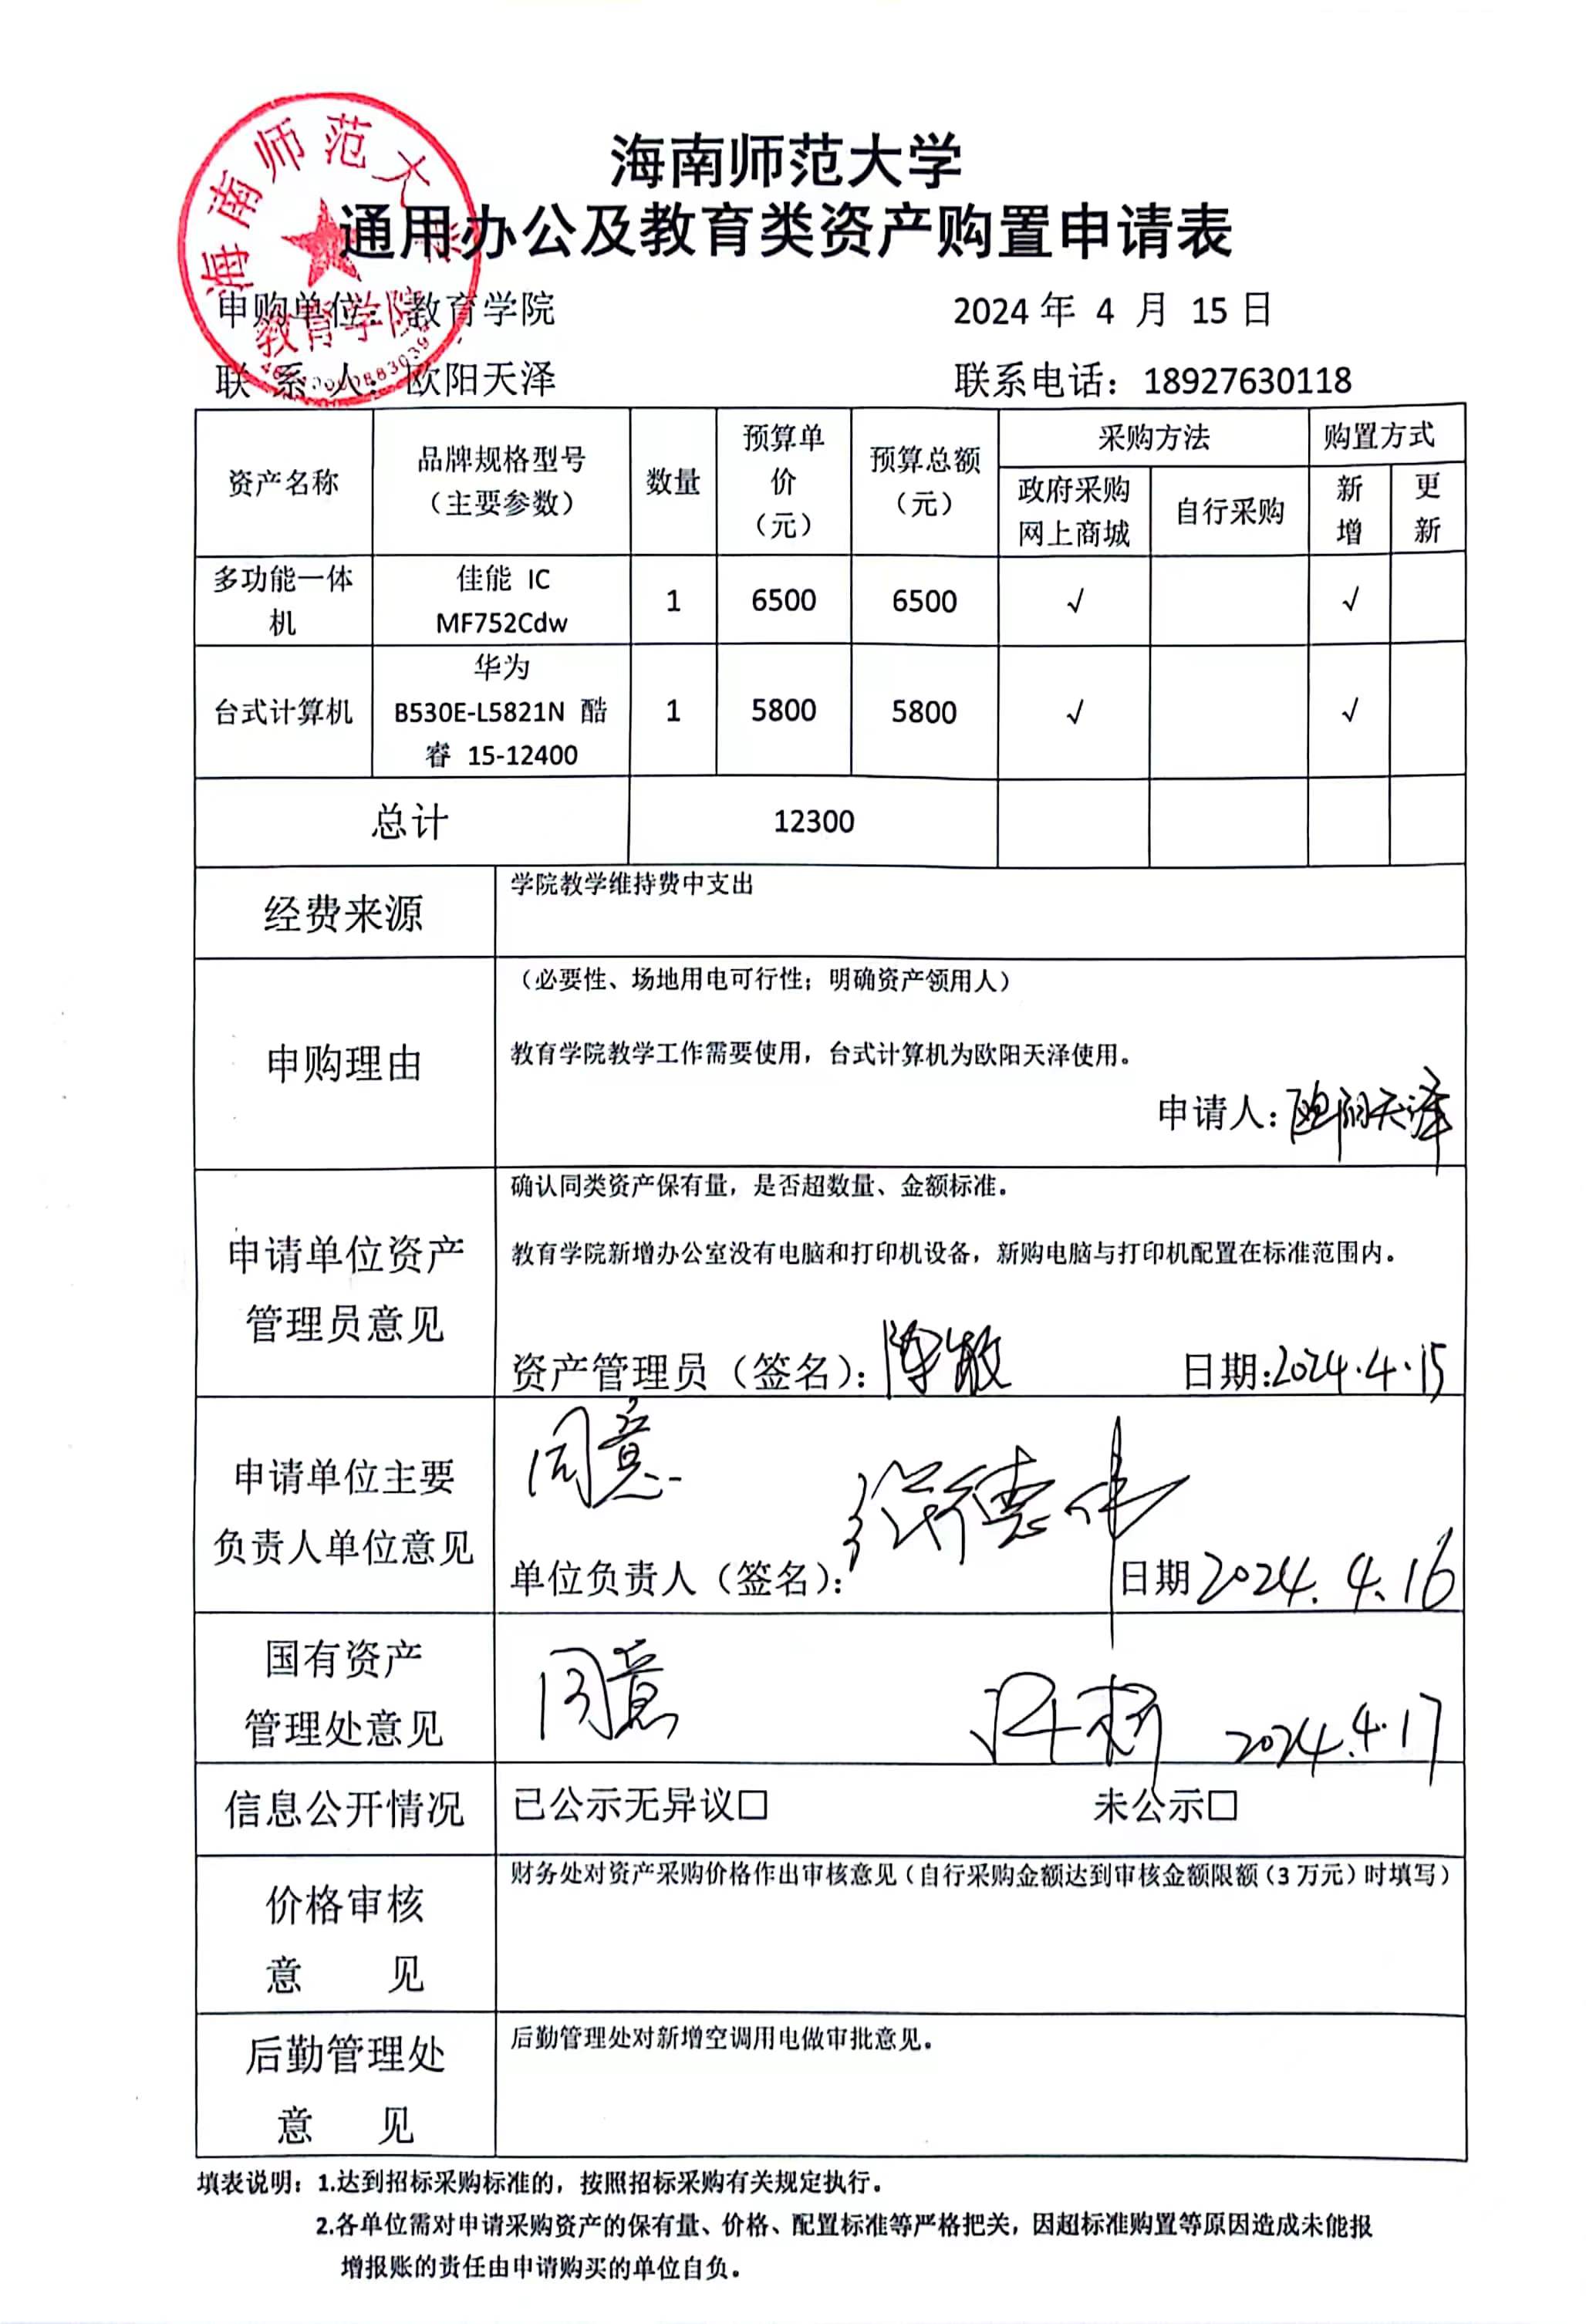 海南师范大学
通用办公及教育类资产购置申请表
海南师范大学
教育学院
申购单位：教育学院 2024 年 4 月 15 日
联系人：欧阳天泽 联系电话：18927630118
资产名称 品牌规格型号（主要参数） 数量 预算单价（元） 预算总额（元） 采购方法 购置方式
政府采购网上商城 自行采购 新增 更新
多功能一体机 佳能 IC MF752Cdw 1 6500 6500 √ √
台式计算机 华为 B530E-L5821N 酷睿 15-12400 1 5800 5800 √ √
总计 12300
经费来源 学院教学维持费中支出
申购理由
（必要性、场地用电可行性；明确资产领用人）
教育学院教学工作需要使用，台式计算机为欧阳天泽使用。
申请人：欧阳天泽
申请单位资产管理员意见
确认同类资产保有量，是否超数量、金额标准。
教育学院新增办公室没有电脑和打印机设备，新购电脑与打印机配置在标准范围内。
资产管理员（签名）：陈敏 日期:2024.4.15
申请单位主要负责人单位意见
同意
单位负责人（签名）： 日期 2024.4.16
国有资产管理处意见
同意 2024.4.17
信息公开情况 已公示无异议□ 未公示□
价格审核意见
财务处对资产采购价格作出审核意见（自行采购金额达到审核金额限额（3 万元）时填写）
后勤管理处意见
后勤管理处对新增空调用电做审批意见。
填表说明：1.达到招标采购标准的，按照招标采购有关规定执行。
2.各单位需对申请采购资产的保有量、价格、配置标准等严格把关，因超标准购置等原因造成未能报
增报账的责任由申请购买的单位自负。